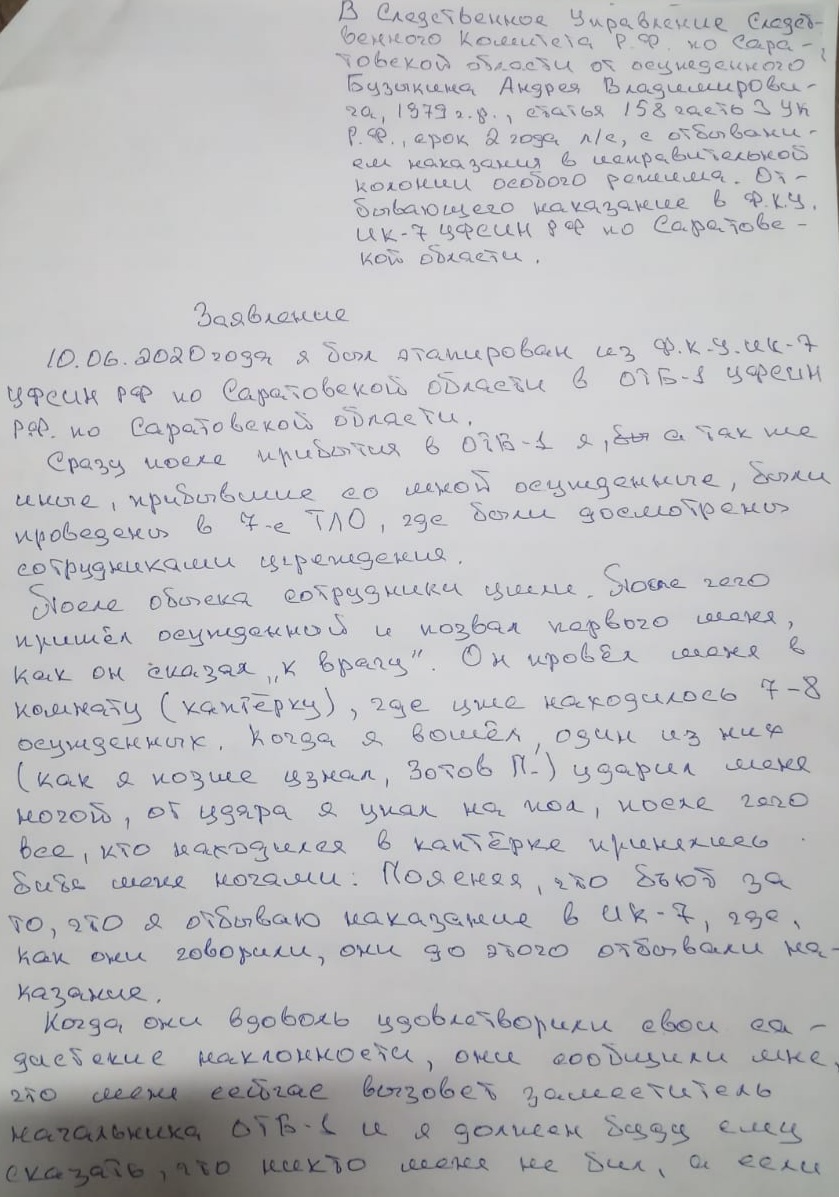 В Следственное Управление Следст-
венного Комитета Р.Ф. по Сара-
товской области от осужденного
Бузыкина Андрея Владимирови-
ча, 1979 г.р., статья 158 часть 3 УК
Р.Ф., срок 2 года л/с, с отбывани-
ем наказания в исправительной
колонии особого режима. От-
бывающего наказание в Ф.К.У.
ИК-7 УФСИН РФ по Саратовс-
кой области.
Заявление
10.06.2020 года я был этапирован из Ф.К.У. ИК-7
УФСИН РФ по Саратовской области в ОТБ-1 УФСИН
РФ. по Саратовской области.
Сразу после прибытия в ОТБ-1 я, бы а так же
иные, прибывшие со мной осужденные, были
проведены в 7-е ТЛО, где были досмотрены
сотрудниками учреждения.
После обыска сотрудники ушли. После чего
пришёл осужденной и позвал первого меня,
как он сказал „к врачу”. Он провёл меня в
комнату (каптёрку), где уже находилось 7-8
осужденных. Когда я вошёл, один из них
(как я позже узнал, Зотов П.) ударил меня
ногой, от удара я упал на пол, после чего
все, кто находился в каптёрке принялись
бить меня ногами. Поясняя, что бьют за
то, что я отбываю наказание в ИК-7, где,
как они говорили, они до этого отбывали на-
казание.
Когда они вдоволь удовлетворили свои са-
дистские наклонности, они сообщили мне,
что меня сейчас вызовет заместитель
начальника ОТБ-1 и я должен буду ему
сказать, что никто меня не бил, а если